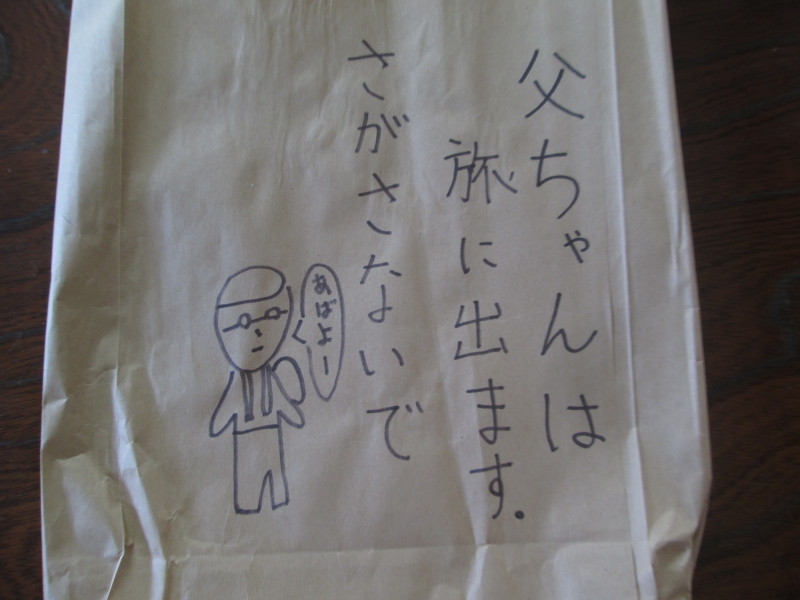 父ちゃんは
旅に出ます.
さがさないで
あばよー